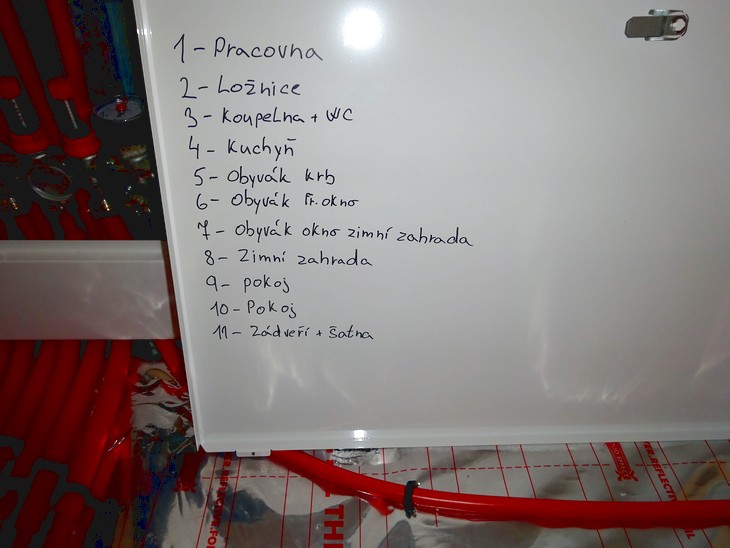 1 - Pracovna
2 - Ložnice
3 - Koupelna + WC
4 - Kuchyň
5 - Obyvák krb
6 - Obyvák Fr. okno
7 - Obyvák okno zimní zahrada
8 - Zimní zahrada
9 - pokoj
10 - Pokoj
11 - Zádveří + šatna